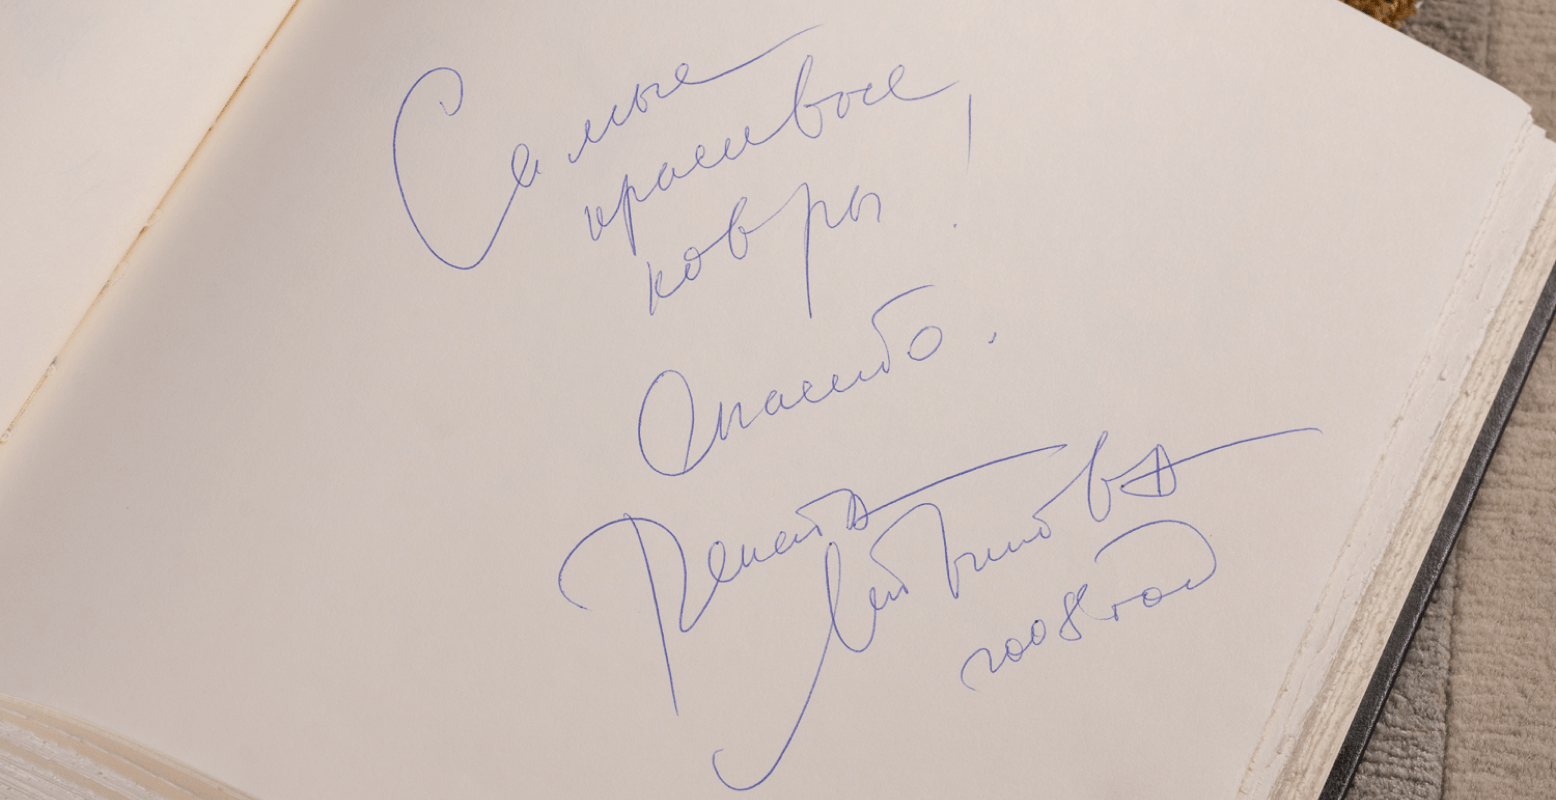 Самые
красивые
ковры!
Спасибо.
Рената
Литвинова
2008 год